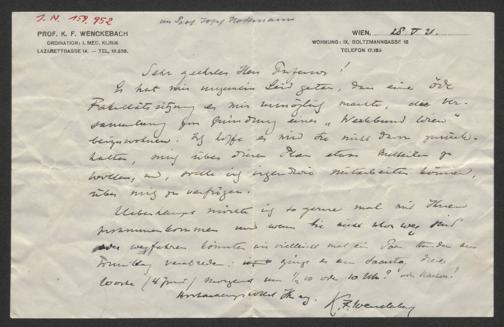 J. N. 159.952
an Prof Josef Hoffmann
PROF. K. F. WENCKEBACH
ORDINATION: I. MED. KLINIK
LAZARETTGASSE 14. — TEL.
WIEN, 28 V 21.
WOHNUNG: IX, BOLTZMANNGASSE 12
TELEFON
Sehr geehrter Herr Professor!
Es hat mir ungemein Leid getan, dass eine öde
Fakultätssitzung es mir unmöglich machte, der Ver-
sammlung zur Gründung eines „Werkbund Wien"
beizuwohnen. Ich hoffe es wird Sie nicht davon zurück-
halten, mich über diesen Plan etwas mitteilen zu
wollen, und, sollte ich irgendwie mitarbeiten können,
über mich zu verfügen.
Ueberhaupt möchte ich so gerne mal mit Ihnen
zusammenkommen und wenn Sie nicht weg sind
oder wegfahren könnten wir vielleicht mal ein Paar Stunden den
Vormittag verabreden: ginge es am Samstag, diese
Woche (4 Juni) morgens um ½ 10 oder 10 Uhr?
Hochachtungsvoll Ihr erg.
K. F. Wenckebach